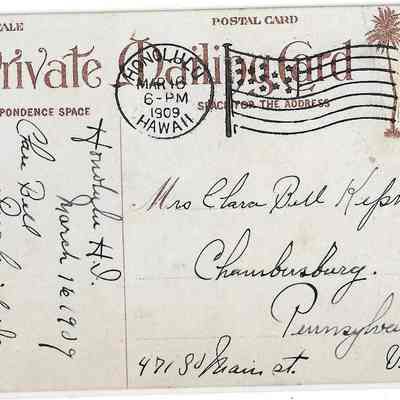 POSTAL CARD
Private Mailing Card
SPACE FOR THE ADDRESS
HONOLULU
MAR 16
6-PM
1909
HAWAII
Honolulu H.I.
March 16 1909
Clara Bell
Mrs Clara Bell
Chambersburg.
Pennsylva
471 So Main st.